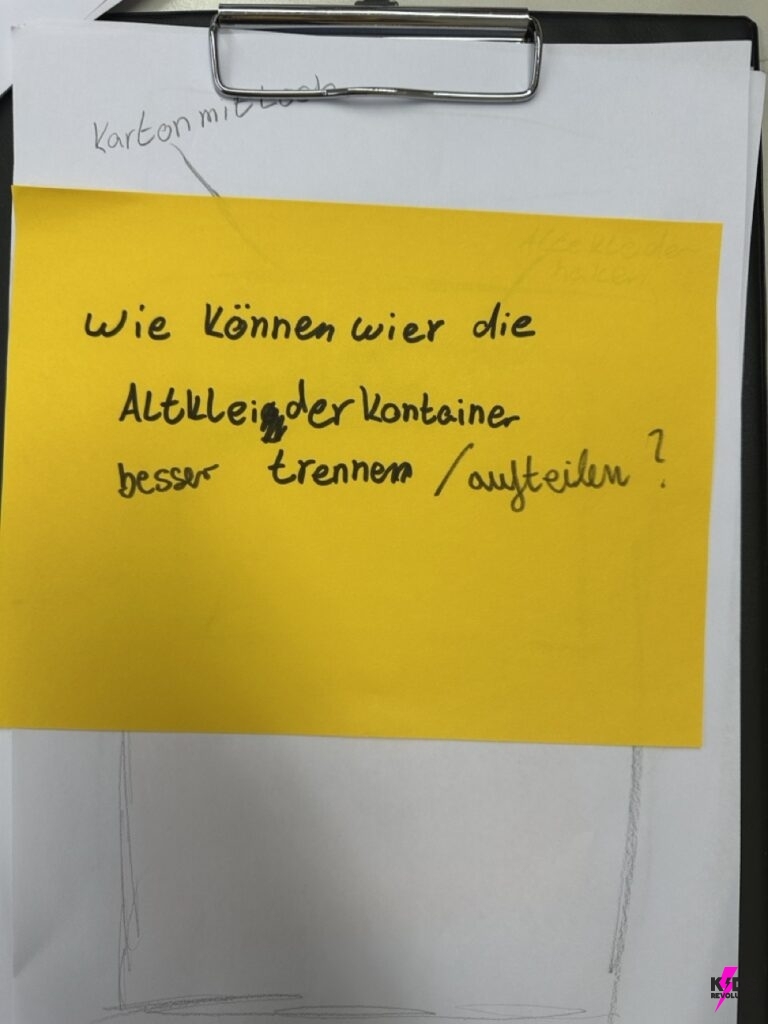 Karton mit Loch
Wie können wier die
Altkleider Kontainer
besser trennen / aufteilen?
KID
REVOLU